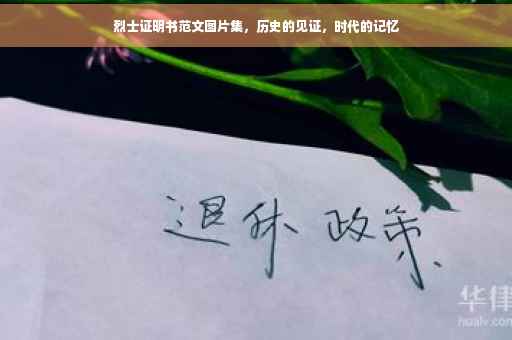 烈士证明书范文图片集，历史的见证，时代的记忆
退休 政策
华律
hualv.com